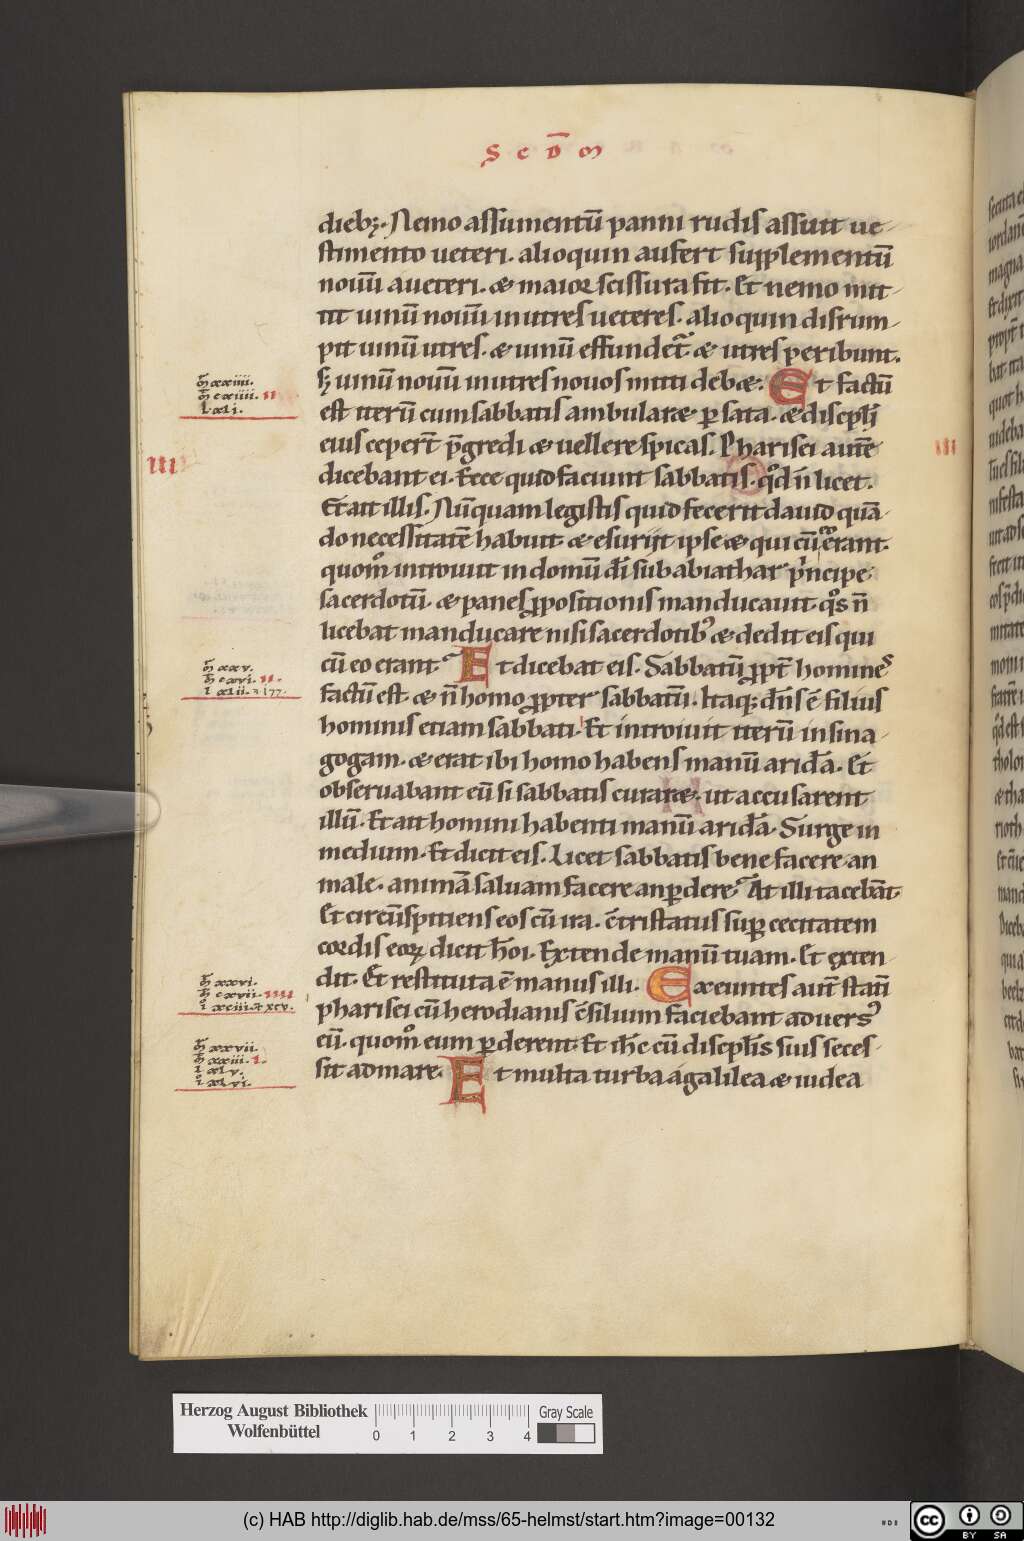 S c D̅ m
dieb;. Nemo assumentū panni rudis assuit ue-
stimento ueteri. alioquin aufert supplementū
nouū a ueteri. & maior scissura fit. Et nemo mit-
tit uinū nouū in utres ueteres. alioquin disrum-
pit uinū utres. & uinū effundet̄ & utres peribunt.
s; uinū nouū in utres nouos mitti deb&. Et factū
m̄ xxiiii.
m̄ cxiiii. II
l. xl i.
est iterū cum sabbatis ambular& ꝑ sata. & discipl̄i
eius ceper̄t p̄gredi & uellere spicas. Pharisei autē
III
dicebant ei. Ecce quid faciunt sabbatis. qd̄ n̄ licet.
Et ait illis. Nūquam legistis quid fecerit dauid quā-
do necessitatē habuit & esuriit ipse & qui cū eo erant.
quom̊ introiuit in domū dī sub abiathar pⁱncipe
sacerdotū. & panes ꝓpositionis manducauit. qo̊s n̄
licebat manducare nisi sacerdotib' & dedit eis qui
cū eo erant. Et dicebat eis. Sabbatū ꝓpt̄ hominēs
m̄ xxv.
m̄ cxvi. II.
l xlii. 
factū est & n̄ homo ꝓpter sabbatū. Itaq; dn̄s ē filius
hominis etiam sabbati. Et introiuit iterū in sina-
gogam. & erat ibi homo habens manū aridā. Et
obseruabant eū si sabbatis curar&. ut accusarent
illū. Et ait homini habenti manū aridā. Surge in
medium. Et dicit eis. Licet sabbatis bene facere an
male. animā saluam facere an ꝑdere. At illi tacebāt.
Et circūspitiens eos cū ira. c̄tristatus suꝑ cecitatem
cordis eoꝝ dicit hōi. Extende manū tuam. Et exten-
dit. Et restituta ē manus illi. Exeuntes aut̄ statī
m̄ xxvi.
m̄ cxvii. IIII
l xciii. xcv.
pharisei cū herodianis c̄silium faciebant aduers'
eū. quom̊ eum ꝑderent. Et ih̄c cū discipl̄is suis seces-
m̄ xxvii.
m̄ xxiii. I.
l xlv.
l xlvi.
sit ad mare. Et multa turba a galilea & iudea
III
Herzog August Bibliothek
Wolfenbüttel
0 1 2 3 4
Gray Scale
(c) HAB http://diglib.hab.de/mss/65-helmst/start.htm?image=00132
cc BY SA